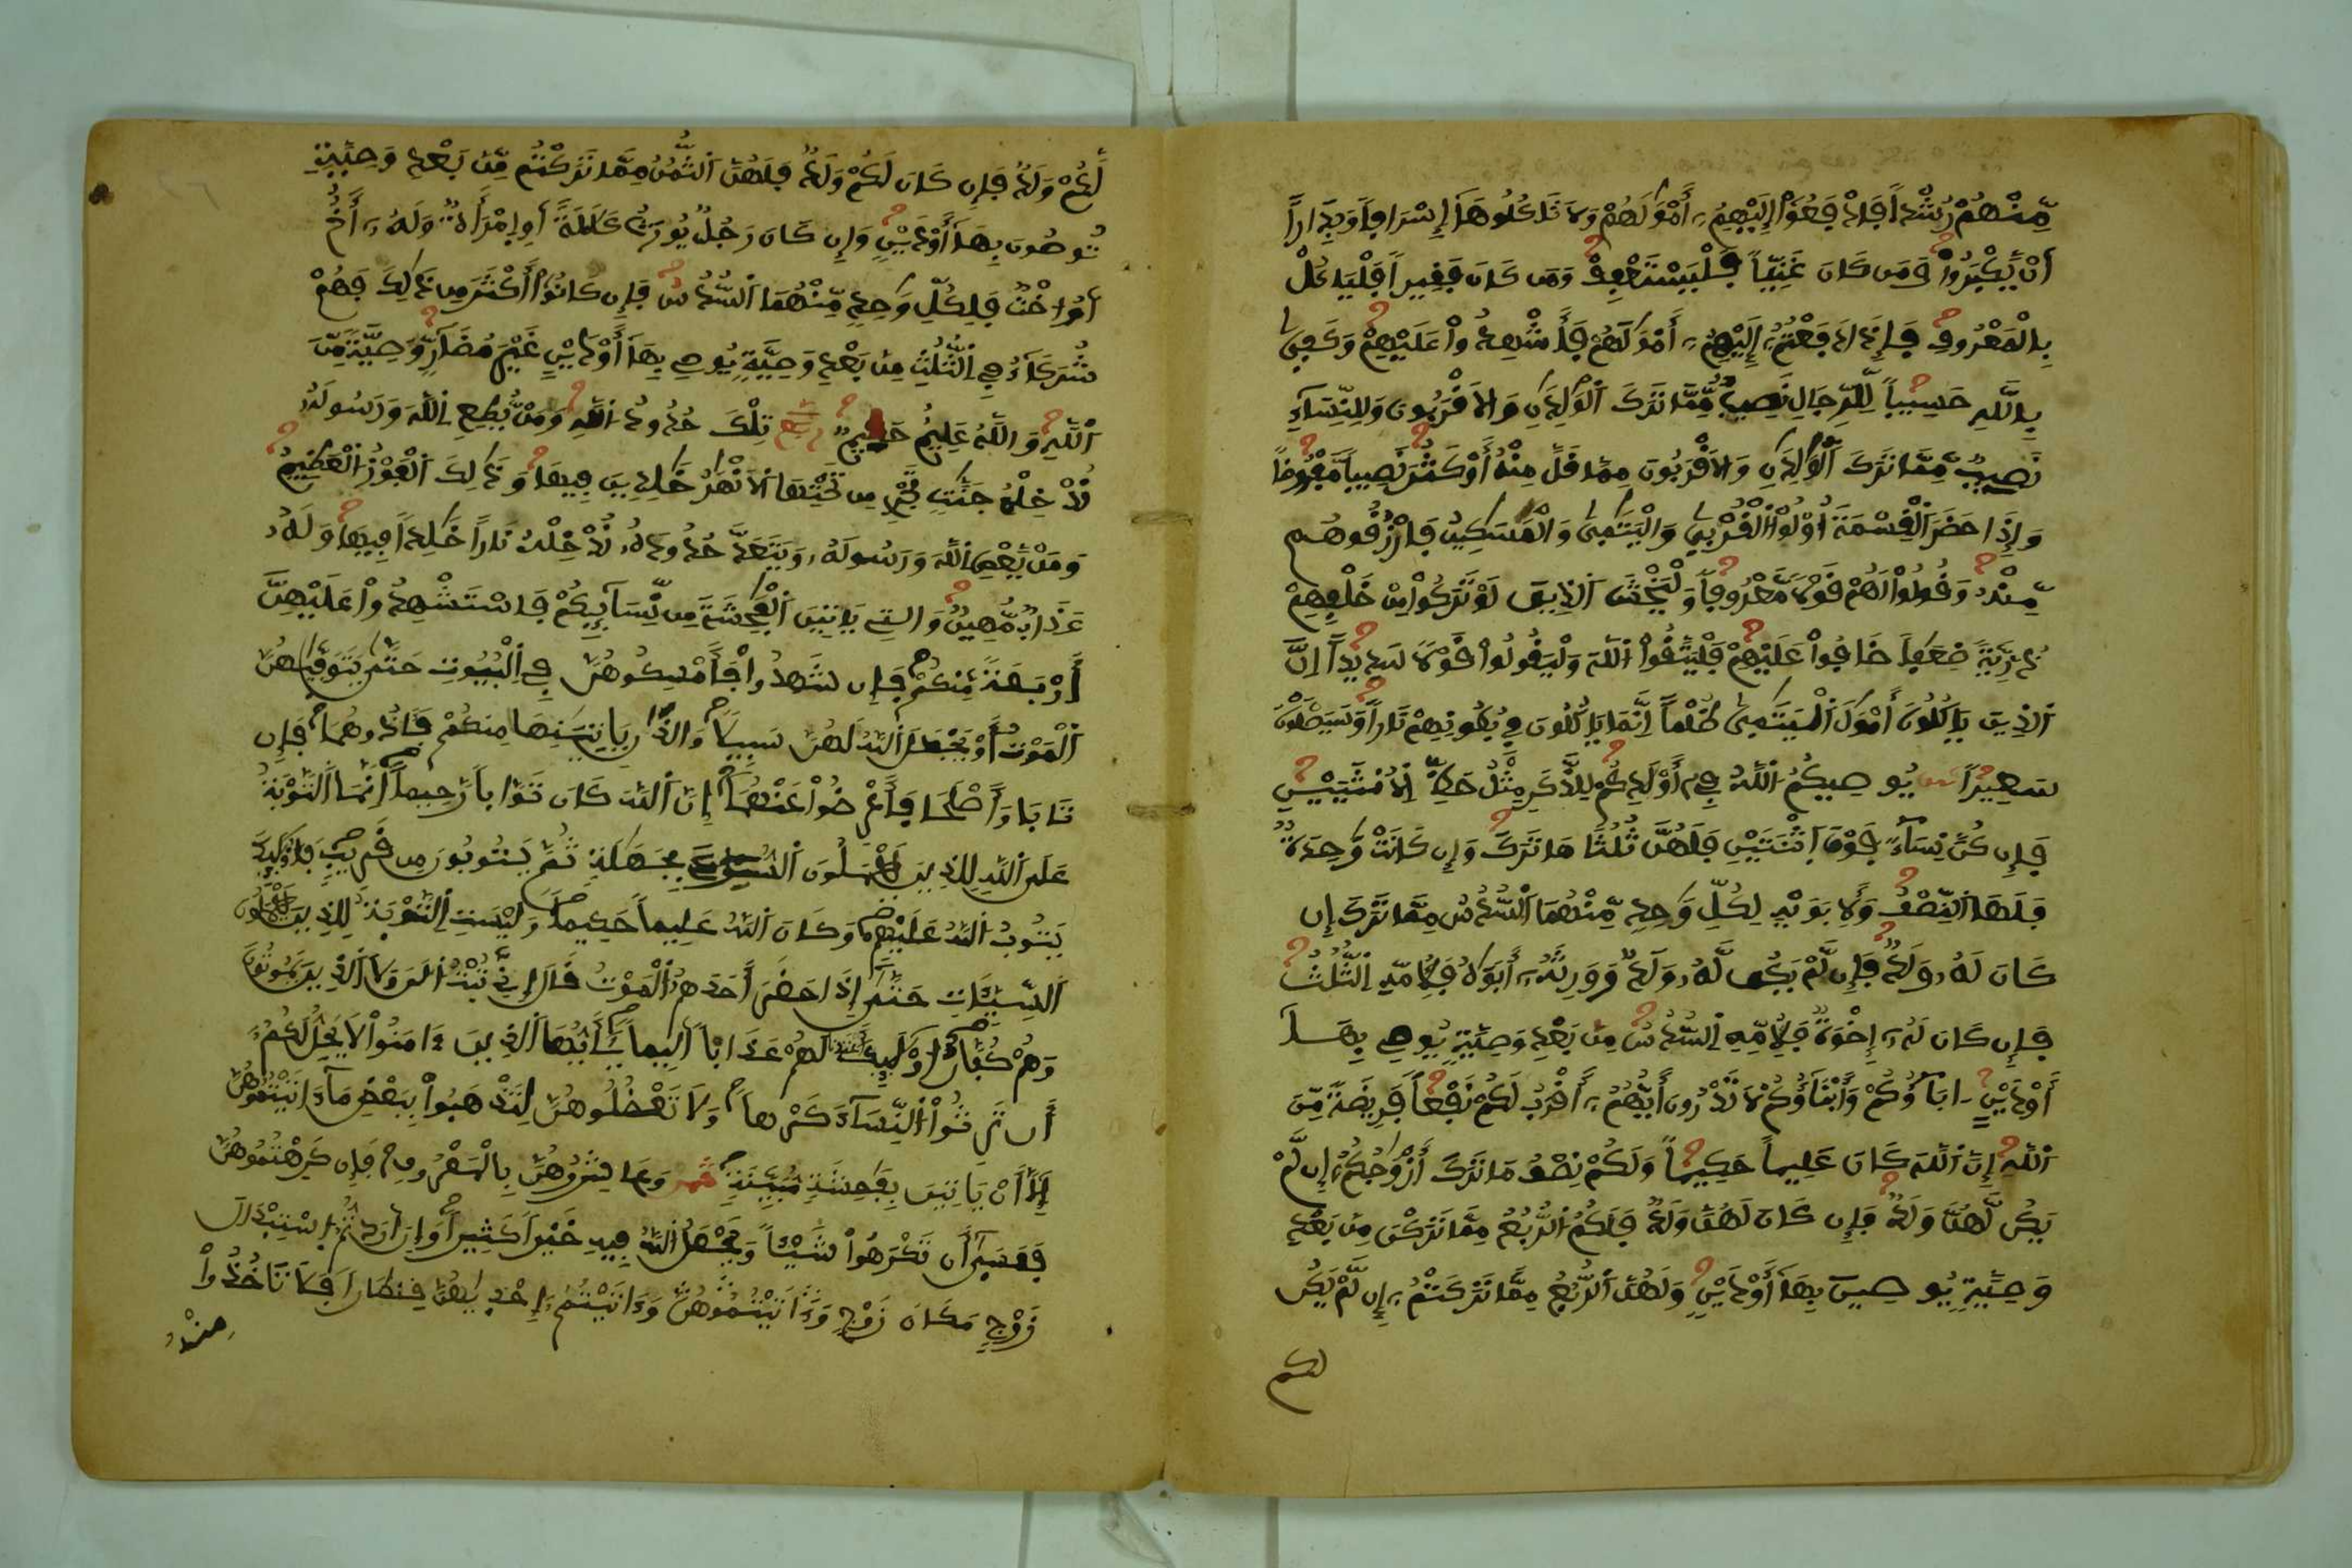 مِّنْهُمْ رُشْداً فَادْفَعُوٓاْ إِلَيْهِمُۥٓ أَمْوَٰلَهُمْ وَلَا تَاكُلُوهَآ إِسْرَافاً وَبِدَاراً
أَنْ يَّكْبَرُواْ وَمَن كَانَ غَنِيّاً فَلْيَسْتَعْفِفْ وَمَن كَانَ فَقِيراً فَلْيَاكُلْ
بِالْمَعْرُوفِ فَإِذَا دَفَعْتُمُۥٓ إِلَيْهِمُۥٓ أَمْوَٰلَهُمْ فَأَشْهِدُواْ عَلَيْهِمْ وَكَفِىٰ
بِاللَّهِ حَسِيباً لِّلرِّجَالِ نَصِيبٌ مِّمَّا تَرَكَ اَلْوَٰلِدَٰنِ وَالَاقْرَبُونَ وَلِلنِّسَآءِ
نَصِيبٌ مِّمَّا تَرَكَ اَلْوَٰلِدَٰنِ وَالَاقْرَبُونَ مِمَّا قَلَّ مِنْهُ أَوْ كَثُرَ نَصِيباً مَّفْرُوضاً
وَإِذَا حَضَرَ اَلْقِسْمَةَ أُوْلُواْ اَلْقُرْبِىٰ وَالْيَتَٰمِىٰ وَالْمَسَٰكِينُ فَارْزُقُوهُم
مِّنْهُ وَقُولُواْ لَهُمْ قَوْلاً مَّعْرُوفاً وَلْيَخْشَ اَلذِينَ لَوْ تَرَكُواْ مِنْ خَلْفِهِمْ
ذُرِّيَّةً ضِعَٰفاً خَافُواْ عَلَيْهِمْ فَلْيَتَّقُواْ اُللَّهَ وَلْيَقُولُواْ قَوْلاً سَدِيداً اِنَّ
اَلذِينَ يَاكُلُونَ أَمْوَٰلَ اَلْيَتَٰمِىٰ ظُلْماً اِنَّمَا يَاكُلُونَ فِى بُطُونِهِمْ نَاراً وَسَيَصْلَوْنَ
سَعِيراً يُوصِيكُمُ اُللَّهُ فِىٓ أَوْلَٰدِكُمْ لِلذَّكَرِ مِثْلُ حَظِّ اِلُانثَيَيْنِ
فَإِن كُنَّ نِسَآءً فَوْقَ اَثْنَتَيْنِ فَلَهُنَّ ثُلُثَا مَا تَرَكَ وَإِن كَانَتْ وَٰحِدَةٌ
فَلَهَا اَلنِّصْفُ وَلِأَبَوَيْهِ لِكُلِّ وَٰحِدٍ مِّنْهُمَا اَلسُّدُسُ مِمَّا تَرَكَ إِن
كَانَ لَهُۥ وَلَدٌ فَإِن لَّمْ يَكُن لَّهُۥ وَلَدٌ وَوَرِثَهُۥٓ أَبَوَٰهُ فَلِأُمِّهِ اِلثُّلُثُ
فَإِن كَانَ لَهُۥٓ إِخْوَةٌ فَلِأُمِّهِ اِلسُّدُسُ مِنۢ بَعْدِ وَصِيَّةٍ يُوصِى بِهَآ
أَوْ دَيْنٍ اٰبَآؤُكُمْ وَأَبْنَآؤُكُمْ لَا تَدْرُونَ أَيُّهُمُۥٓ أَقْرَبُ لَكُمْ نَفْعاً فَرِيضَةً مِّنَ
اَللَّهِ إِنَّ اَللَّهَ كَانَ عَلِيماً حَكِيماً وَلَكُمْ نِصْفُ مَا تَرَكَ أَزْوَٰجُكُمُۥٓ إِن لَّمْ
يَكُن لَّهُنَّ وَلَدٌ فَإِن كَانَ لَهُنَّ وَلَدٌ فَلَكُمُ اُلرُّبُعُ مِمَّا تَرَكْنَ مِنۢ بَعْدِ
وَصِيَّةٍ يُوصِينَ بِهَآ أَوْ دَيْنٍ وَلَهُنَّ اَلرُّبُعُ مِمَّا تَرَكْتُمُۥٓ إِن لَّمْ يَكُن
لكم
لَّكُمْ وَلَدٌ فَإِن كَانَ لَكُمْ وَلَدٌ فَلَهُنَّ اَلثُّمُنُ مِمَّا تَرَكْتُم مِّنۢ بَعْدِ وَصِيَّةٍ
تُوصُونَ بِهَآ أَوْ دَيْنٍ وَإِن كَانَ رَجُلٌ يُورَثُ كَلَٰلَةً اَوِ اِمْرَأَةٌ وَلَهُۥٓ أَخٌ
اَوُ اخْتٌ فَلِكُلِّ وَٰحِدٍ مِّنْهُمَا اَلسُّدُسُ فَإِن كَانُوٓاْ أَكْثَرَ مِن ذَٰلِكَ فَهُمْ
شُرَكَآءُ فِى اِلثُّلُثِ مِنۢ بَعْدِ وَصِيَّةٍ يُوصِى بِهَآ أَوْ دَيْنٍ غَيْرَ مُضَآرٍّ وَصِيَّةً مِّنَ
اَللَّهِ وَاللَّهُ عَلِيمٌ حَلِيمٌ تِلْكَ حُدُودُ اُللَّهِ وَمَنْ يُّطِعِ اِللَّهَ وَرَسُولَهُۥ
نُدْخِلْهُ جَنَّٰتٍ تَجْرِى مِن تَحْتِهَا اَلَانْهَٰرُ خَٰلِدِينَ فِيهَا وَذَٰلِكَ اَلْفَوْزُ اُلْعَظِيمُ
وَمَنْ يَّعْصِ اِللَّهَ وَرَسُولَهُۥ وَيَتَعَدَّ حُدُودَهُۥ نُدْخِلْهُ نَاراً خَٰلِداً فِيهَا وَلَهُۥ
عَذَابٌ مُّهِينٌ وَالٰتِى يَاتِينَ اَلْفَٰحِشَةَ مِن نِّسَآئِكُمْ فَاسْتَشْهِدُواْ عَلَيْهِنَّ
أَرْبَعَةً مِّنكُمْ فَإِن شَهِدُواْ فَأَمْسِكُوهُنَّ فِى اِلْبُيُوتِ حَتَّىٰ يَتَوَفَّىٰهُنَّ
اَلْمَوْتُ أَوْ يَجْعَلَ اَللَّهُ لَهُنَّ سَبِيلاً وَالذَٰنِ يَاتِيَٰنِهَا مِنكُمْ فَـَٔاذُوهُمَا فَإِن
تَابَا وَأَصْلَحَا فَأَعْرِضُواْ عَنْهُمَآ إِنَّ اَللَّهَ كَانَ تَوَّاباً رَّحِيماً اِنَّمَا اَلتَّوْبَةُ
عَلَى اَللَّهِ لِلذِينَ يَعْمَلُونَ اَلسُّوٓءَ بِجَهَٰلَةٍ ثُمَّ يَتُوبُونَ مِن قَرِيبٍ فَأُوْلَٰٓئِكَ
يَتُوبُ اُللَّهُ عَلَيْهِمْ وَكَانَ اَللَّهُ عَلِيماً حَكِيماً وَلَيْسَتِ اِلتَّوْبَةُ لِلذِينَ يَعْمَلُونَ
اَلسَّيِّـَٔاتِ حَتَّىٰٓ إِذَا حَضَرَ أَحَدَهُمُ اُلْمَوْتُ قَالَ إِنِّى تُبْتُ اُلَٰنَ وَلَا اَلذِينَ يَمُوتُونَ
وَهُمْ كُفَّارٌ اُوْلَٰٓئِكَ أَعْتَدْنَا لَهُمْ عَذَاباً اَلِيماً يَٰٓأَيُّهَا اَلذِينَ ءَامَنُواْ لَا يَحِلُّ لَكُمُۥٓ
أَن تَرِثُواْ اُلنِّسَآءَ كَرْهاً وَلَا تَعْضُلُوهُنَّ لِتَذْهَبُواْ بِبَعْضِ مَآ ءَاتَيْتُمُوهُنَّ
إِلَّآ أَنْ يَّاتِينَ بِفَٰحِشَةٍ مُّبَيِّنَةٍ وَعَاشِرُوهُنَّ بِالْمَعْرُوفِ فَإِن كَرِهْتُمُوهُنَّ
فَعَسَىٰٓ أَن تَكْرَهُواْ شَيْـٔاً وَيَجْعَلَ اَللَّهُ فِيهِ خَيْراً كَثِيراً وَإِنَ اَرَدتُّمُ اُسْتِبْدَالَ
زَوْجٍ مَّكَانَ زَوْجٍ وَءَاتَيْتُمُۥٓ إِحْدَىٰهُنَّ قِنطَاراً فَلَا تَاخُذُواْ
مِنْهُ